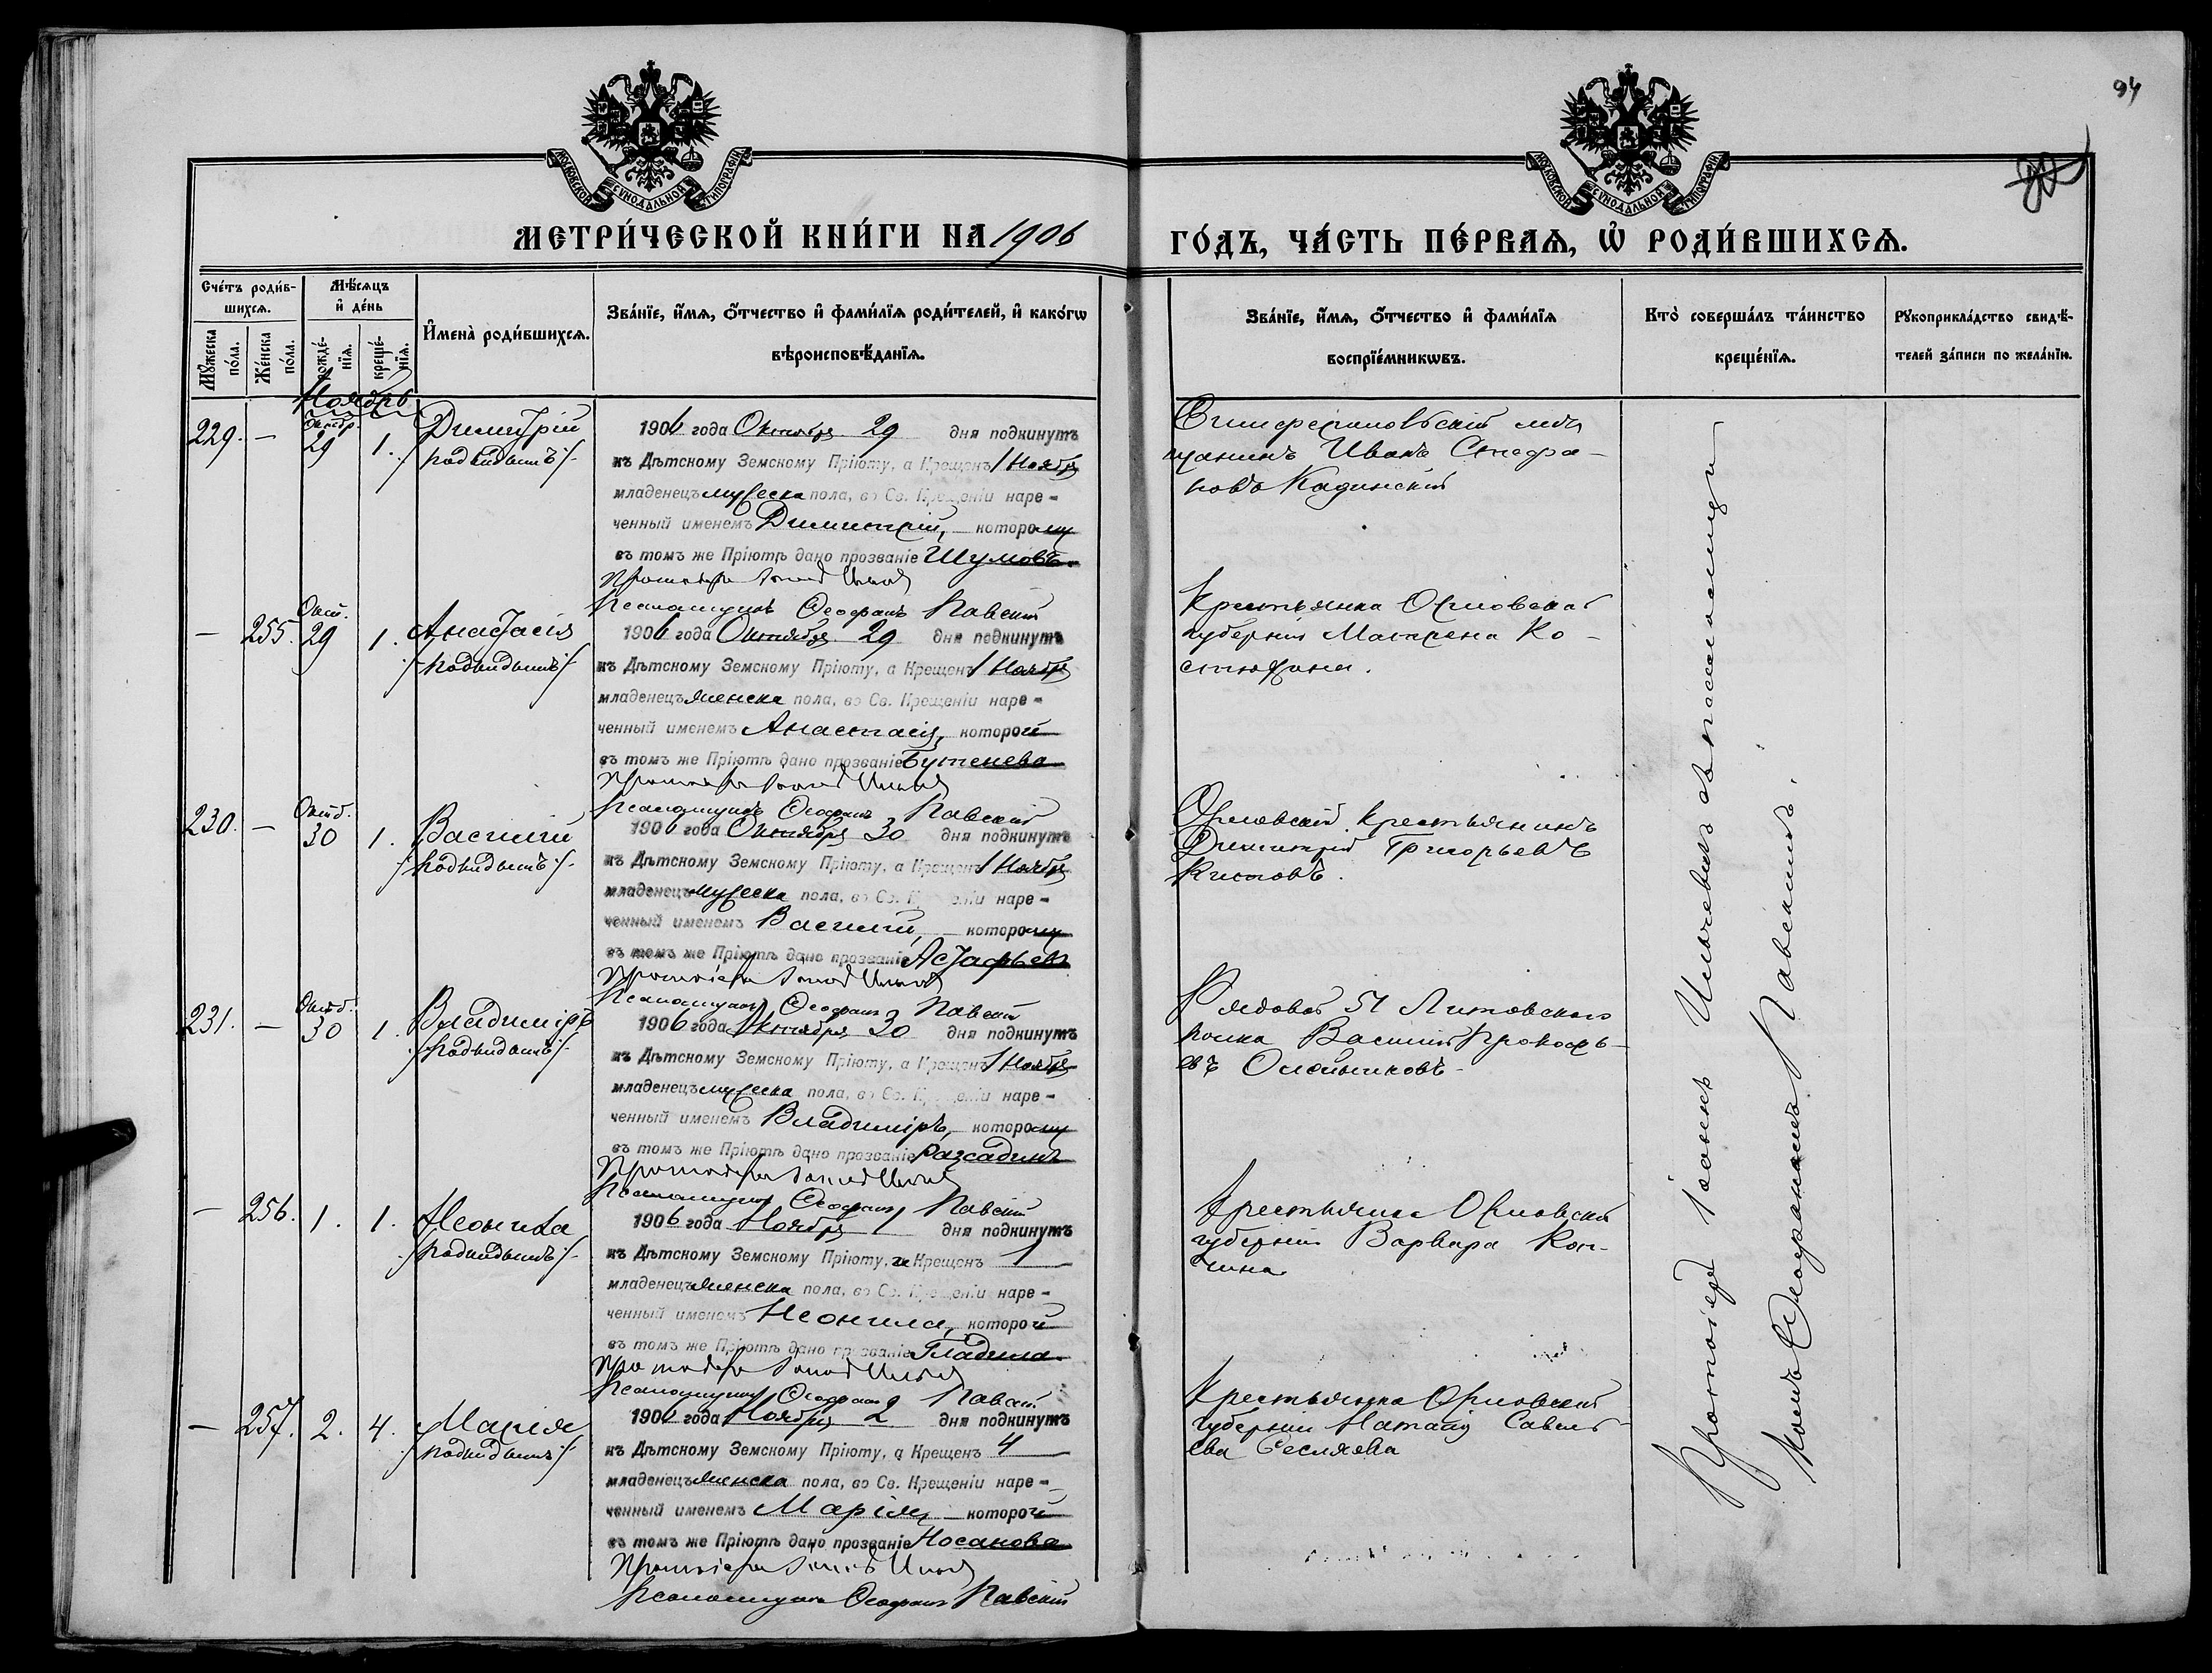 94
МОСКОВСКОЙ СѴНОДАЛЬНОЙ ТИПОГРАФІИ
МОСКОВСКОЙ СѴНОДАЛЬНОЙ ТИПОГРАФІИ
МЕТРИ́ЧЕСКОЙ КНИ́ГИ НА 1906
ГО́ДЪ, ЧА́СТЬ ПЕ́РВАѦ, Ѿ РОДИ́ВШИХСѦ.
Сче́тъ роди́в-
шихсѧ.
Мꙋ́жеска
по́ла.
Же́нска
по́ла.
Мѣ́сѧцъ
и҆ де́нь
рожде́-
нїѧ.
креще́-
нїѧ.
И҆мена̀ роди́вшихсѧ.
Зва́нїе, и҆́мѧ, ѻ҆́тчество и҆ фами́лїѧ роди́телей, и҆ како́гѡ
вѣроисповѣ́данїѧ.
Зва́нїе, и҆́мѧ, ѻ҆́тчество и҆ фами́лїѧ
воспрїе́мникѡвъ.
Кто̀ соверша́лъ та́инство
креще́нїѧ.
Рꙋкоприкла́дство свидѣ́-
телей за́писи по жела́нїю.
Ноябрь
229. — Октбр. 29 1. Димитрій
/подкидышъ/
1906 года Октября 29 дня подкинутъ
къ Дѣтскому Земскому Пріюту, а Крещенъ 1 Ноября
младенецъ мужеска пола, во Св. Крещеніи наре-
ченный именемъ Димитрій, которому
въ томъ же Пріютѣ дано прозваніе Шумовъ.
Псаломщикъ Ѳеофанъ Павскій
Симферопольскій мѣ-
щанинъ Иванъ Стефа-
новъ Кадинскій
— 255. Окт. 29 1. Анастасія
/подкидышъ/
1906 года Октября 29 дня подкинутъ
къ Дѣтскому Земскому Пріюту, а Крещенъ 1 Ноября
младенецъ женска пола, во Св. Крещеніи наре-
ченный именемъ Анастасія, которой
въ томъ же Пріютѣ дано прозваніе Бутенева
Псаломщикъ Ѳеофанъ Павскій
Крестьянка Орловской
губерніи Матрена Ко-
стюхина.
230. — Октб. 30 1. Василій
/подкидышъ/
1906 года Октября 30 дня подкинутъ
къ Дѣтскому Земскому Пріюту, а Крещенъ 1 Ноября
младенецъ мужеска пола, во Св. Крещеніи наре-
ченный именемъ Василій, которому
въ томъ же Пріютѣ дано прозваніе Астафьевъ
Псаломщикъ Ѳеофанъ Павскій
Орловскій крестьянинъ
Димитрій Григорьевъ
231. — Октб. 30 1. Владиміръ
/подкидышъ/
1906 года Октября 30 дня подкинутъ
къ Дѣтскому Земскому Пріюту, а Крещенъ 1 Ноября
младенецъ мужеска пола, во Св. Крещеніи наре-
ченный именемъ Владиміръ, которому
въ томъ же Пріютѣ дано прозваніе Разсадинъ
Псаломщикъ Ѳеофанъ Павскій
Рядовой 51 Литовскаго
полка Василій Прокофь-
евъ Олейниковъ
— 256. 1. 1. Неонила
/подкидышъ/
1906 года Ноября 1 дня подкинутъ
къ Дѣтскому Земскому Пріюту, и Крещенъ 1
младенецъ женска пола, во Св. Крещеніи наре-
ченный именемъ Неонила, которой
въ томъ же Пріютѣ дано прозваніе Гладина
Псаломщикъ Ѳеофанъ Павскій
Крестьянка Орловской
губерніи Варвара
— 257. 2. 4. Марія
/подкидышъ/
1906 года Ноября 2 дня подкинутъ
къ Дѣтскому Земскому Пріюту, а Крещенъ 4
младенецъ женска пола, во Св. Крещеніи наре-
ченный именемъ Марія, которой
въ томъ же Пріютѣ дано прозваніе Носанова
Псаломщикъ Ѳеофанъ Павскій
Крестьянка Орловской
губерніи Наталія Савель-
ева
Протоіерей Іоаннъ съ псаломщи-
комъ Ѳеофаномъ Павскимъ.